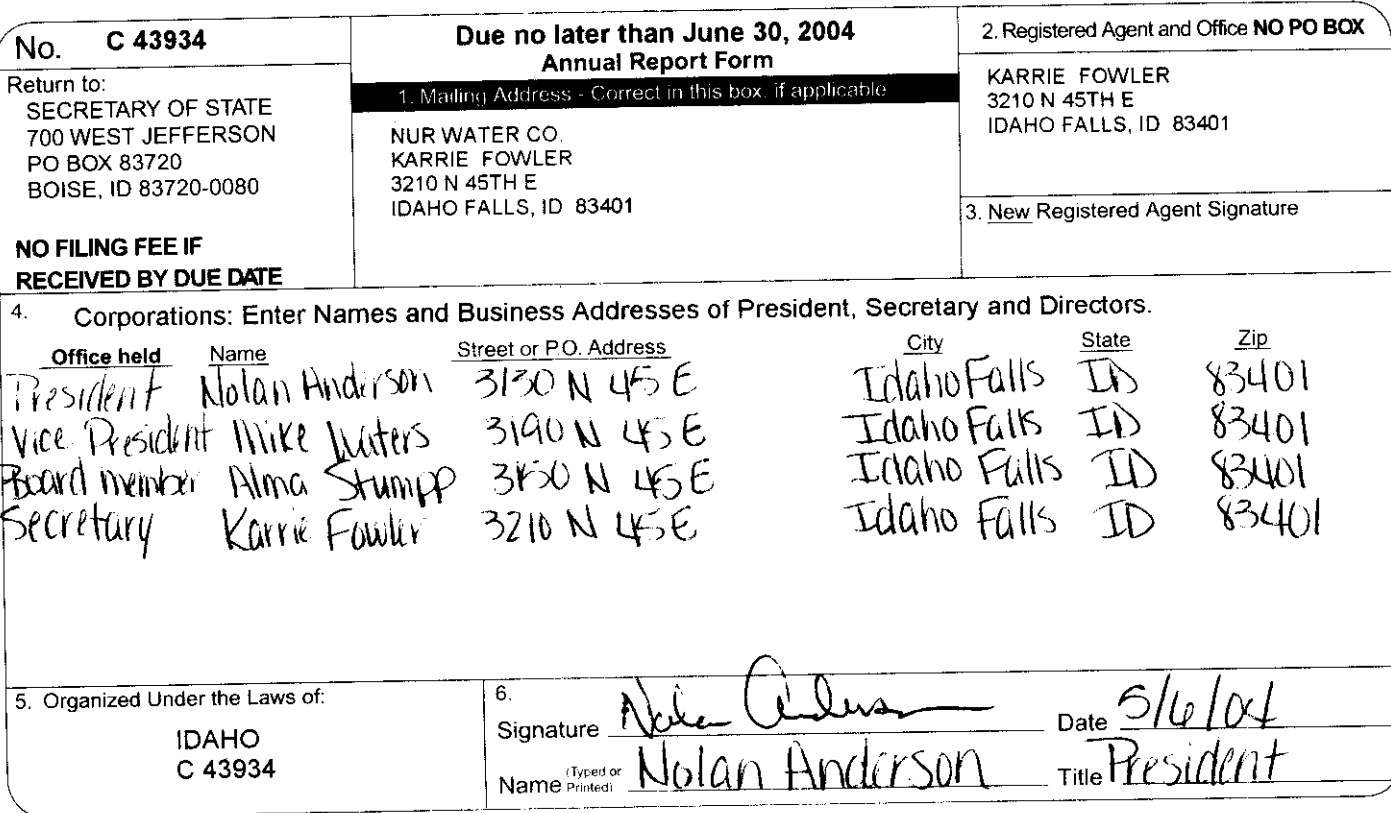 No. C 43934
Return to:
SECRETARY OF STATE
700 WEST JEFFERSON
PO BOX 83720
BOISE, ID 83720-0080
NO FILING FEE IF
RECEIVED BY DUE DATE
Due no later than June 30, 2004
Annual Report Form
1. Mailing Address - Correct in this box, if applicable
NUR WATER CO.
KARRIE FOWLER
3210 N 45TH E
IDAHO FALLS, ID 83401
2. Registered Agent and Office NO PO BOX
KARRIE FOWLER
3210 N 45TH E
IDAHO FALLS, ID 83401
3. New Registered Agent Signature
4. Corporations: Enter Names and Business Addresses of President, Secretary and Directors.
Office held Name Street or P.O. Address City State Zip
President Nolan Anderson 3130 N 45 E Idaho Falls ID 83401
Vice President Mike Waters 3190 N 45 E Idaho Falls ID 83401
Board member Alma Stumpp N 45 E Idaho Falls ID 83401
Secretary Karrie Fowler 3210 N 45 E Idaho Falls ID 83401
5. Organized Under the Laws of:
IDAHO
C 43934
6.
Signature Nolan Anderson Date 5/6/04
Name (Typed or Printed) Nolan Anderson Title President